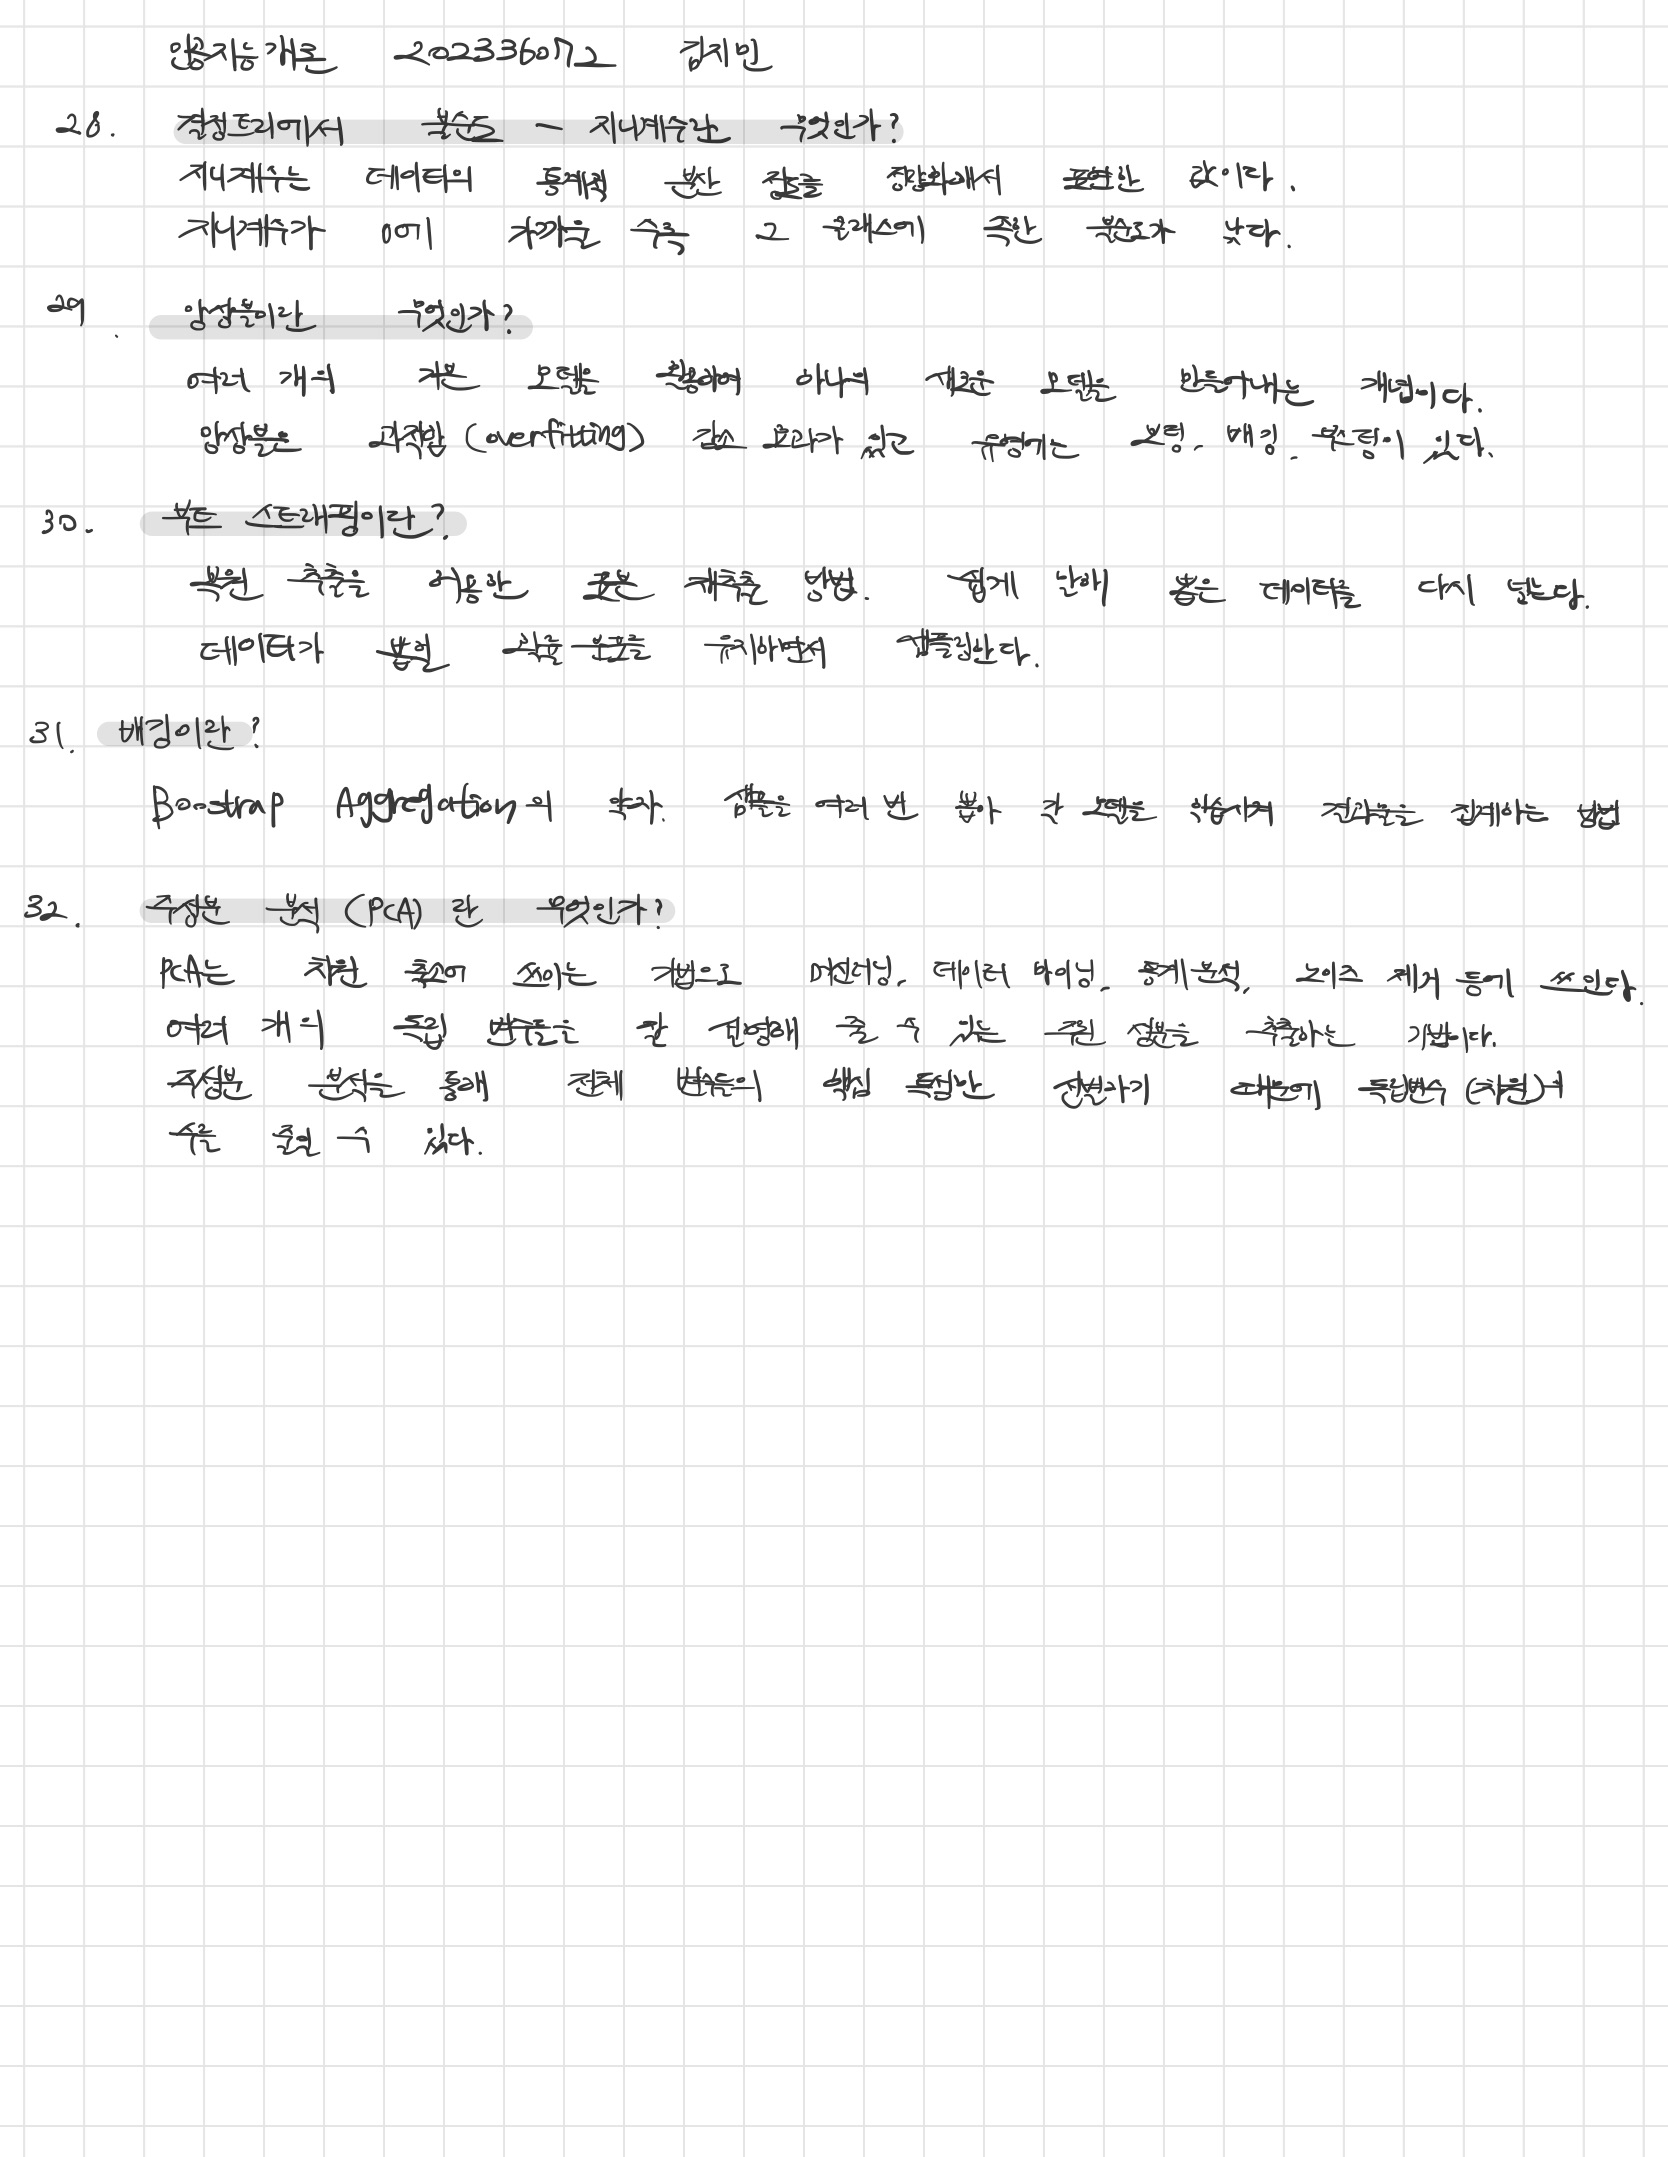 인공지능개론 202336072 김지민
28. 결정트리에서 불순도 - 지니계수란 무엇인가?
지니계수는 데이터의 통계적 분산 정도를 정량화해서 표현한 값이다.
지니계수가 0에 가까울 수록 그 클래스에 속한 불순도가 낮다.
29. 앙상블이란 무엇인가?
여러 개의 기본 모델을 활용하여 하나의 새로운 모델을 만들어내는 개념이다.
앙상블은 과적합 (overfitting) 감소 효과가 있고 유형에는 보팅, 배깅, 부스팅이 있다.
30. 부트 스트래핑이란?
복원 추출을 이용한 표본 재추출 방법. 쉽게 말해 뽑은 데이터를 다시 넣는다.
데이터가 뽑힐 확률 분포를 유지하면서 샘플링한다.
31. 배깅이란?
Boostrap Aggregation의 약자. 샘플을 여러 번 뽑아 각 모델을 학습시켜 결과물을 집계하는 방법
32. 주성분 분석 (PCA) 란 무엇인가?
PCA는 차원 축소에 쓰이는 기법으로 머신러닝, 데이터 마이닝, 통계 분석, 노이즈 제거 등에 쓰인다.
여러 개의 독립 변수들을 잘 설명해 줄 수 있는 주된 성분을 추출하는 기법이다.
주성분 분석을 통해 전체 변수들의 핵심 특성만 선별하기 때문에 독립변수 (차원)의
수를 줄일 수 있다.